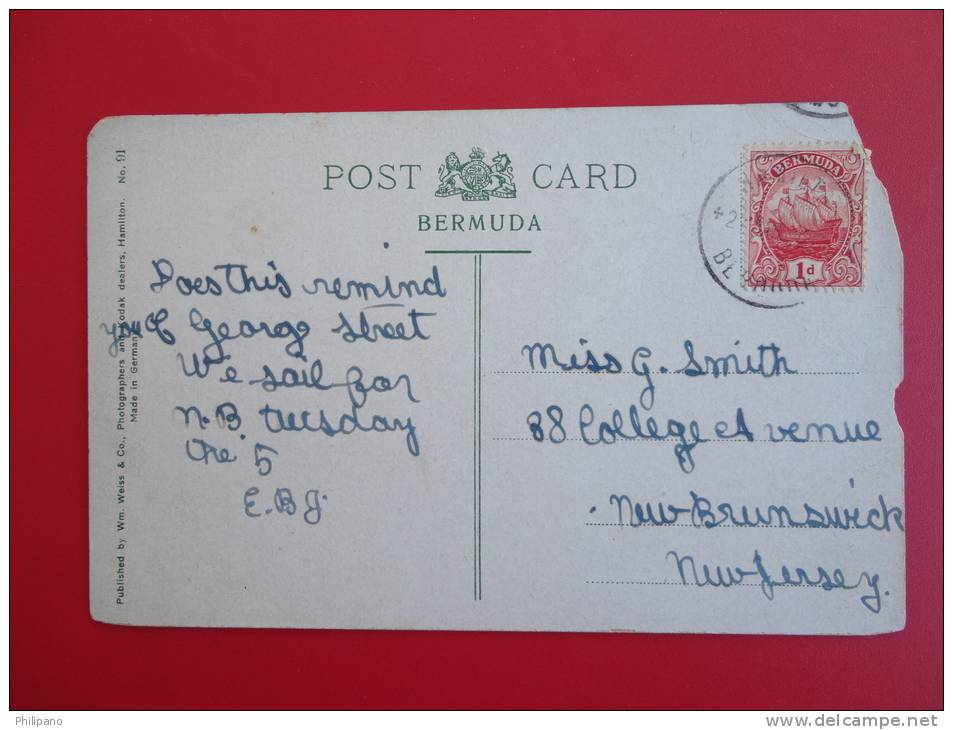 POST CARD
BERMUDA
BERMUDA
1d
Does this remind
you George Street
We sail for
N.B. tuesday
the 5
E.B.J.
Miss G. Smith
88 College Avenue
New Brunswick
New Jersey.
Published by Wm. Weiss & Co., Photographers and Kodak dealers, Hamilton. No. 91
Made in German
Philipano
www.delcampe.net